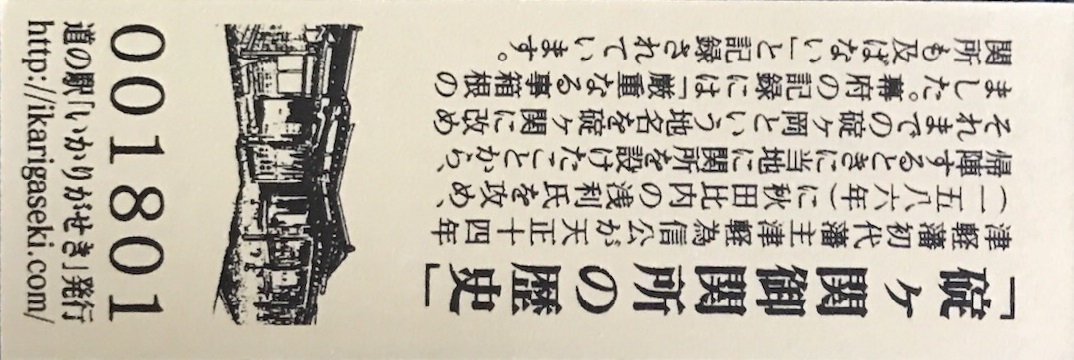 「碇ヶ関御関所の歴史」
津軽藩初代藩主津軽為信公が天正十四年
(一五八六年)に秋田比内の浅利氏を攻め、
帰陣するときに当地に関所を設けたことから、
それまでの碇ヶ岡という地名を碇ヶ関に改め
ました。幕府の記録には「厳重なる事箱根の
関所も及ばない」と記録されています。
001801
道の駅「いかりがせき」発行
http://ikarigaseki.com/